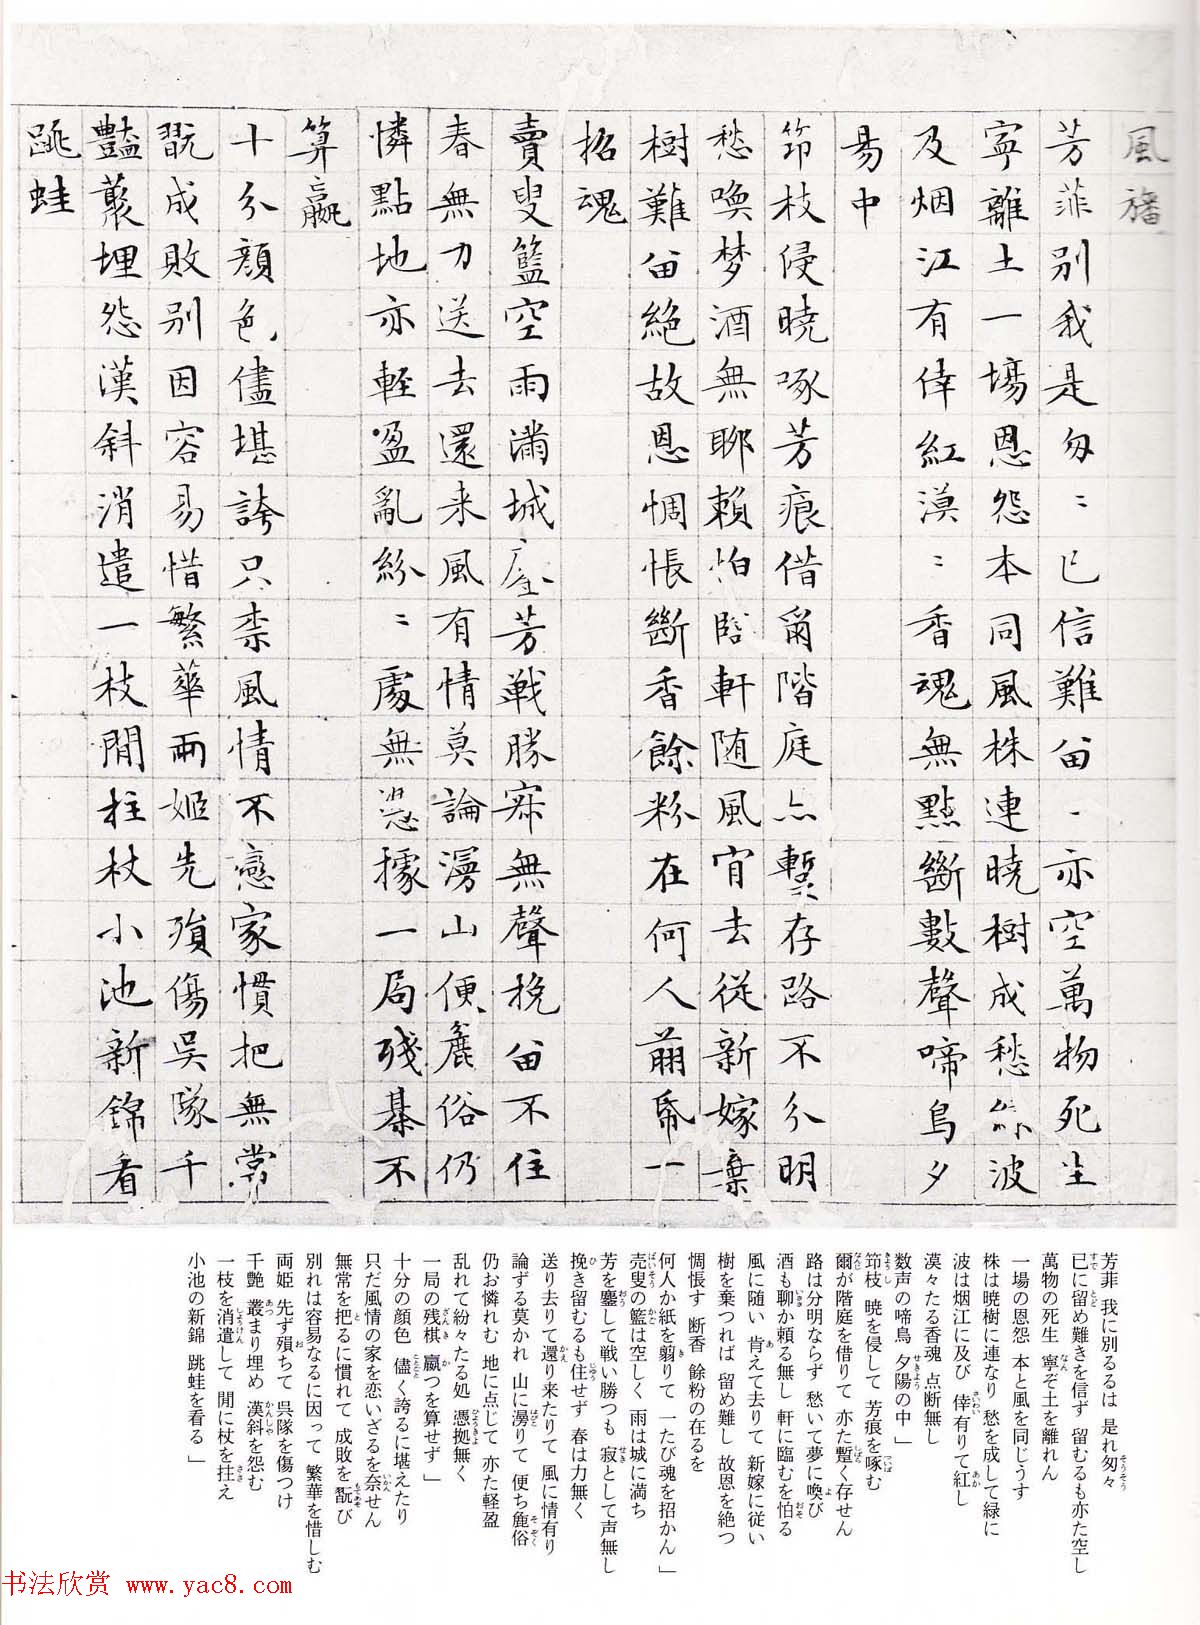 風旛
芳菲別我是匆〻已信難畄〻亦空萬物死生
寧離土一場恩怨本同風株連曉樹成愁綠波
及烟江有倖紅漠〻香魂無點斷數聲啼鳥夕
昜中
筇枝侵曉啄芳痕借爾階庭亦蹔存路不分明
愁喚梦酒無聊賴怕臨軒随風肯去從新嫁棄
樹難畄絶故恩惆悵斷香餘粉在何人翦帋一
招魂
賣叟籃空雨滿城鏖芳戦勝寂無聲挽畄不住
春無力送去還来風有情莫論溷山便麄俗仍
憐點地亦輕盈亂紛〻處無憑據一局残棊不
算嬴
十分顔色儘堪誇只柰風情不戀家慣把無常
翫成敗別因容易惜繁華兩姬先殞傷吳隊千
豔叢埋怨漢斜消遣一枝閒拄杖小池新錦看
跳蛙
芳菲 我に別るるは 是れ匆々
已に留め難きを信ず 留むるも亦た空し
萬物の死生 寧ぞ土を離れん
一場の恩怨 本と風を同じうす
株は曉樹に連なり 愁を成して緑に
波は烟江に及び 倖有りて紅し
漠々たる香魂 点断無し
数声の啼鳥 夕陽の中」
筇枝 曉を侵して 芳痕を啄む
爾が階庭を借りて 亦た蹔く存せん
路は分明ならず 愁いて夢に喚び
酒も聊か頼る無し 軒に臨むを怕る
風に随い 肯えて去りて 新嫁に従い
樹を棄つれば 留め難し 故恩を絶つ
惆悵す 断香 餘粉の在るを
何人か紙を翦りて 一たび魂を招かん」
売叟の籃は空しく 雨は城に満ち
芳を鏖して戦い勝つも 寂として声無し
挽き留むるも住せず 春は力無く
送り去りて還り来たりて 風に情有り
論ずる莫かれ 山に溷りて 便ち麄俗
仍お憐れむ 地に点じて 亦た軽盈
乱れて紛々たる処 憑拠無く
一局の残棋 嬴つを算せず」
十分の顔色 儘く誇るに堪えたり
只だ風情の家を恋いざるを奈せん
無常を把るに慣れて 成敗を翫び
別れは容易なるに因って 繁華を惜しむ
両姫 先ず殞ちて 呉隊を傷つけ
千艶 叢まり埋め 漢斜を怨む
一枝を消遣して 閒に杖を拄え
小池の新錦 跳蛙を看る」
书法欣赏 www.yac8.com